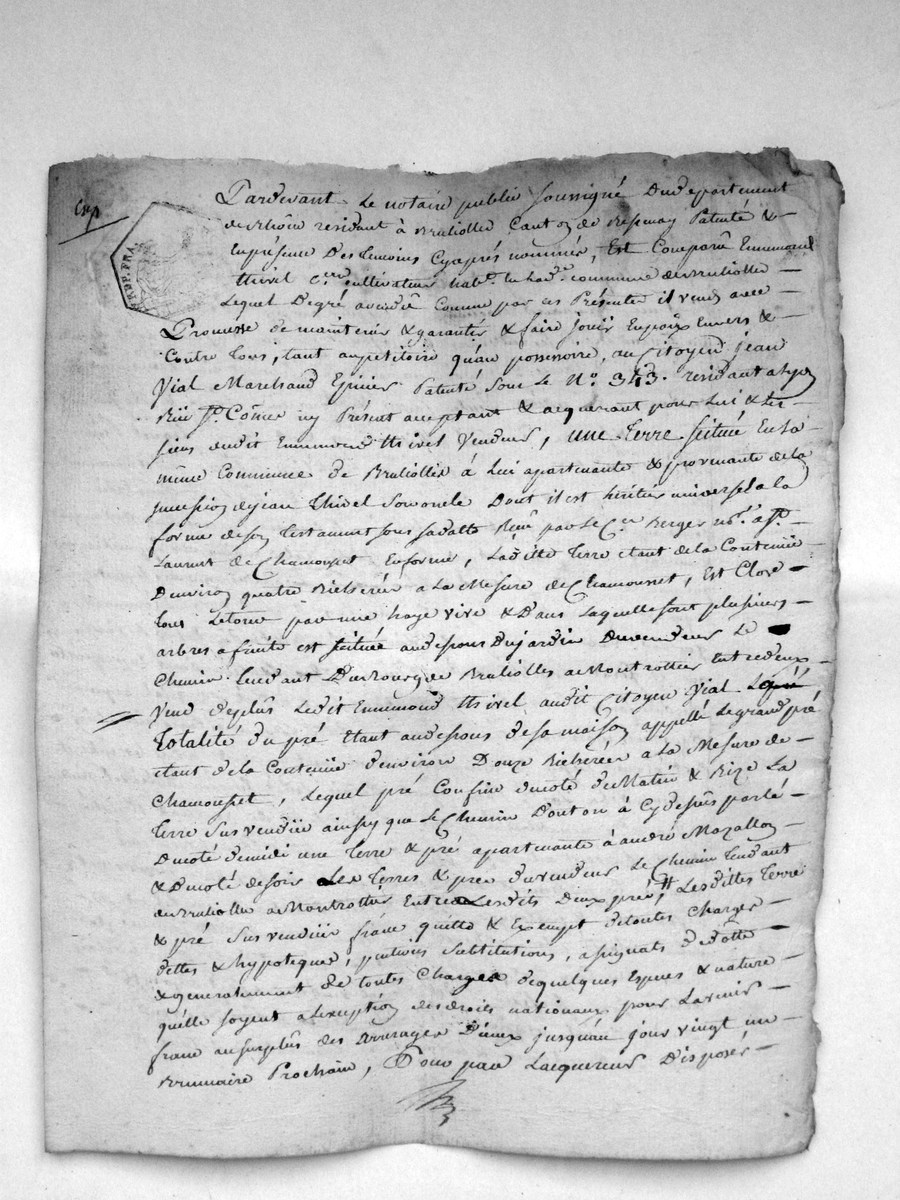 Exp.
REP. FRA.
Pardevant Le notaire public soussigné Du departement
du Rhône residant à Brullioles Canton de Bessenay Patenté &
En présence Des temoins Cyaprés nommés, Est Comparû Ennemond
thivel C.en cultivateur hab.t commune de Brulliolles
Lequel De gré Comme par ces Présentes il vend avec
Promesse de maintenir & garantir & faire jouir Envers &
Contre tous, tant au petitoire qu'au possessoire, au Citoyen jean
Vial Marchand Epicier Patenté sous le N.o 343. residant a Lyon
Rüe S.t Côme icy Présent acceptant & acquerant pour Lui & les
siens dudit Ennemond thivel Vendeur, une terre scituée En La
même Commune de Brulliolles à Lui apartenante & provenante de la
succession de jean thivel son oncle Dont il est héritier universel a la
forme de son testament sous sa datte Recû par le C.en Berger no.re a S.t
Laurent de Chamousset En forme, La ditte terre etant de la Contenüe
D'environ quatre Bicherées a La Mesure de Chamousset, Est Close
tout Letour par une haye vive & Dans Laquelle sont plusieurs
arbres a fruits est scituée audessous Du jardin Du vendeur Le
Chemin tendant Du Bourg de Brulliolles a Montrottier Entre deux
Vend deplus Ledit Ennemond thivel audit Citoyen Vial La
Totalité Du pré Etant audessous de sa maison appellé Le grand pré
etant de la Contenüe d'environ Douze Bicherées a La Mesure de
Chamousset, Lequel pré Confine du coté de Matin & Bize La
terre Sus vendüe ainsy que Le Chemin Dont on à Cy dessus parlé
Du coté de midi une terre & pré apartenante à andré Mazallon
& Du coté de soir Les terres & prés du vendeur Le Chemin tendant
de Brulliolles a Montrottier Entre Lesdits Deux prés, Les dittes terre
& pré Sus vendüe franc quitte & Exempt de toutes Charges
dettes & hypoteque, substitutions, d
& generalement de toutes Charges de quelques Especes & nature
qu'elle soyent a L'exception des droits nationaux pour Lavenir
franc au surplus des arrerages D'iceux jusqu'au jour vingt un
Brumaire Prochain, Pour par L'acquereur Disposer